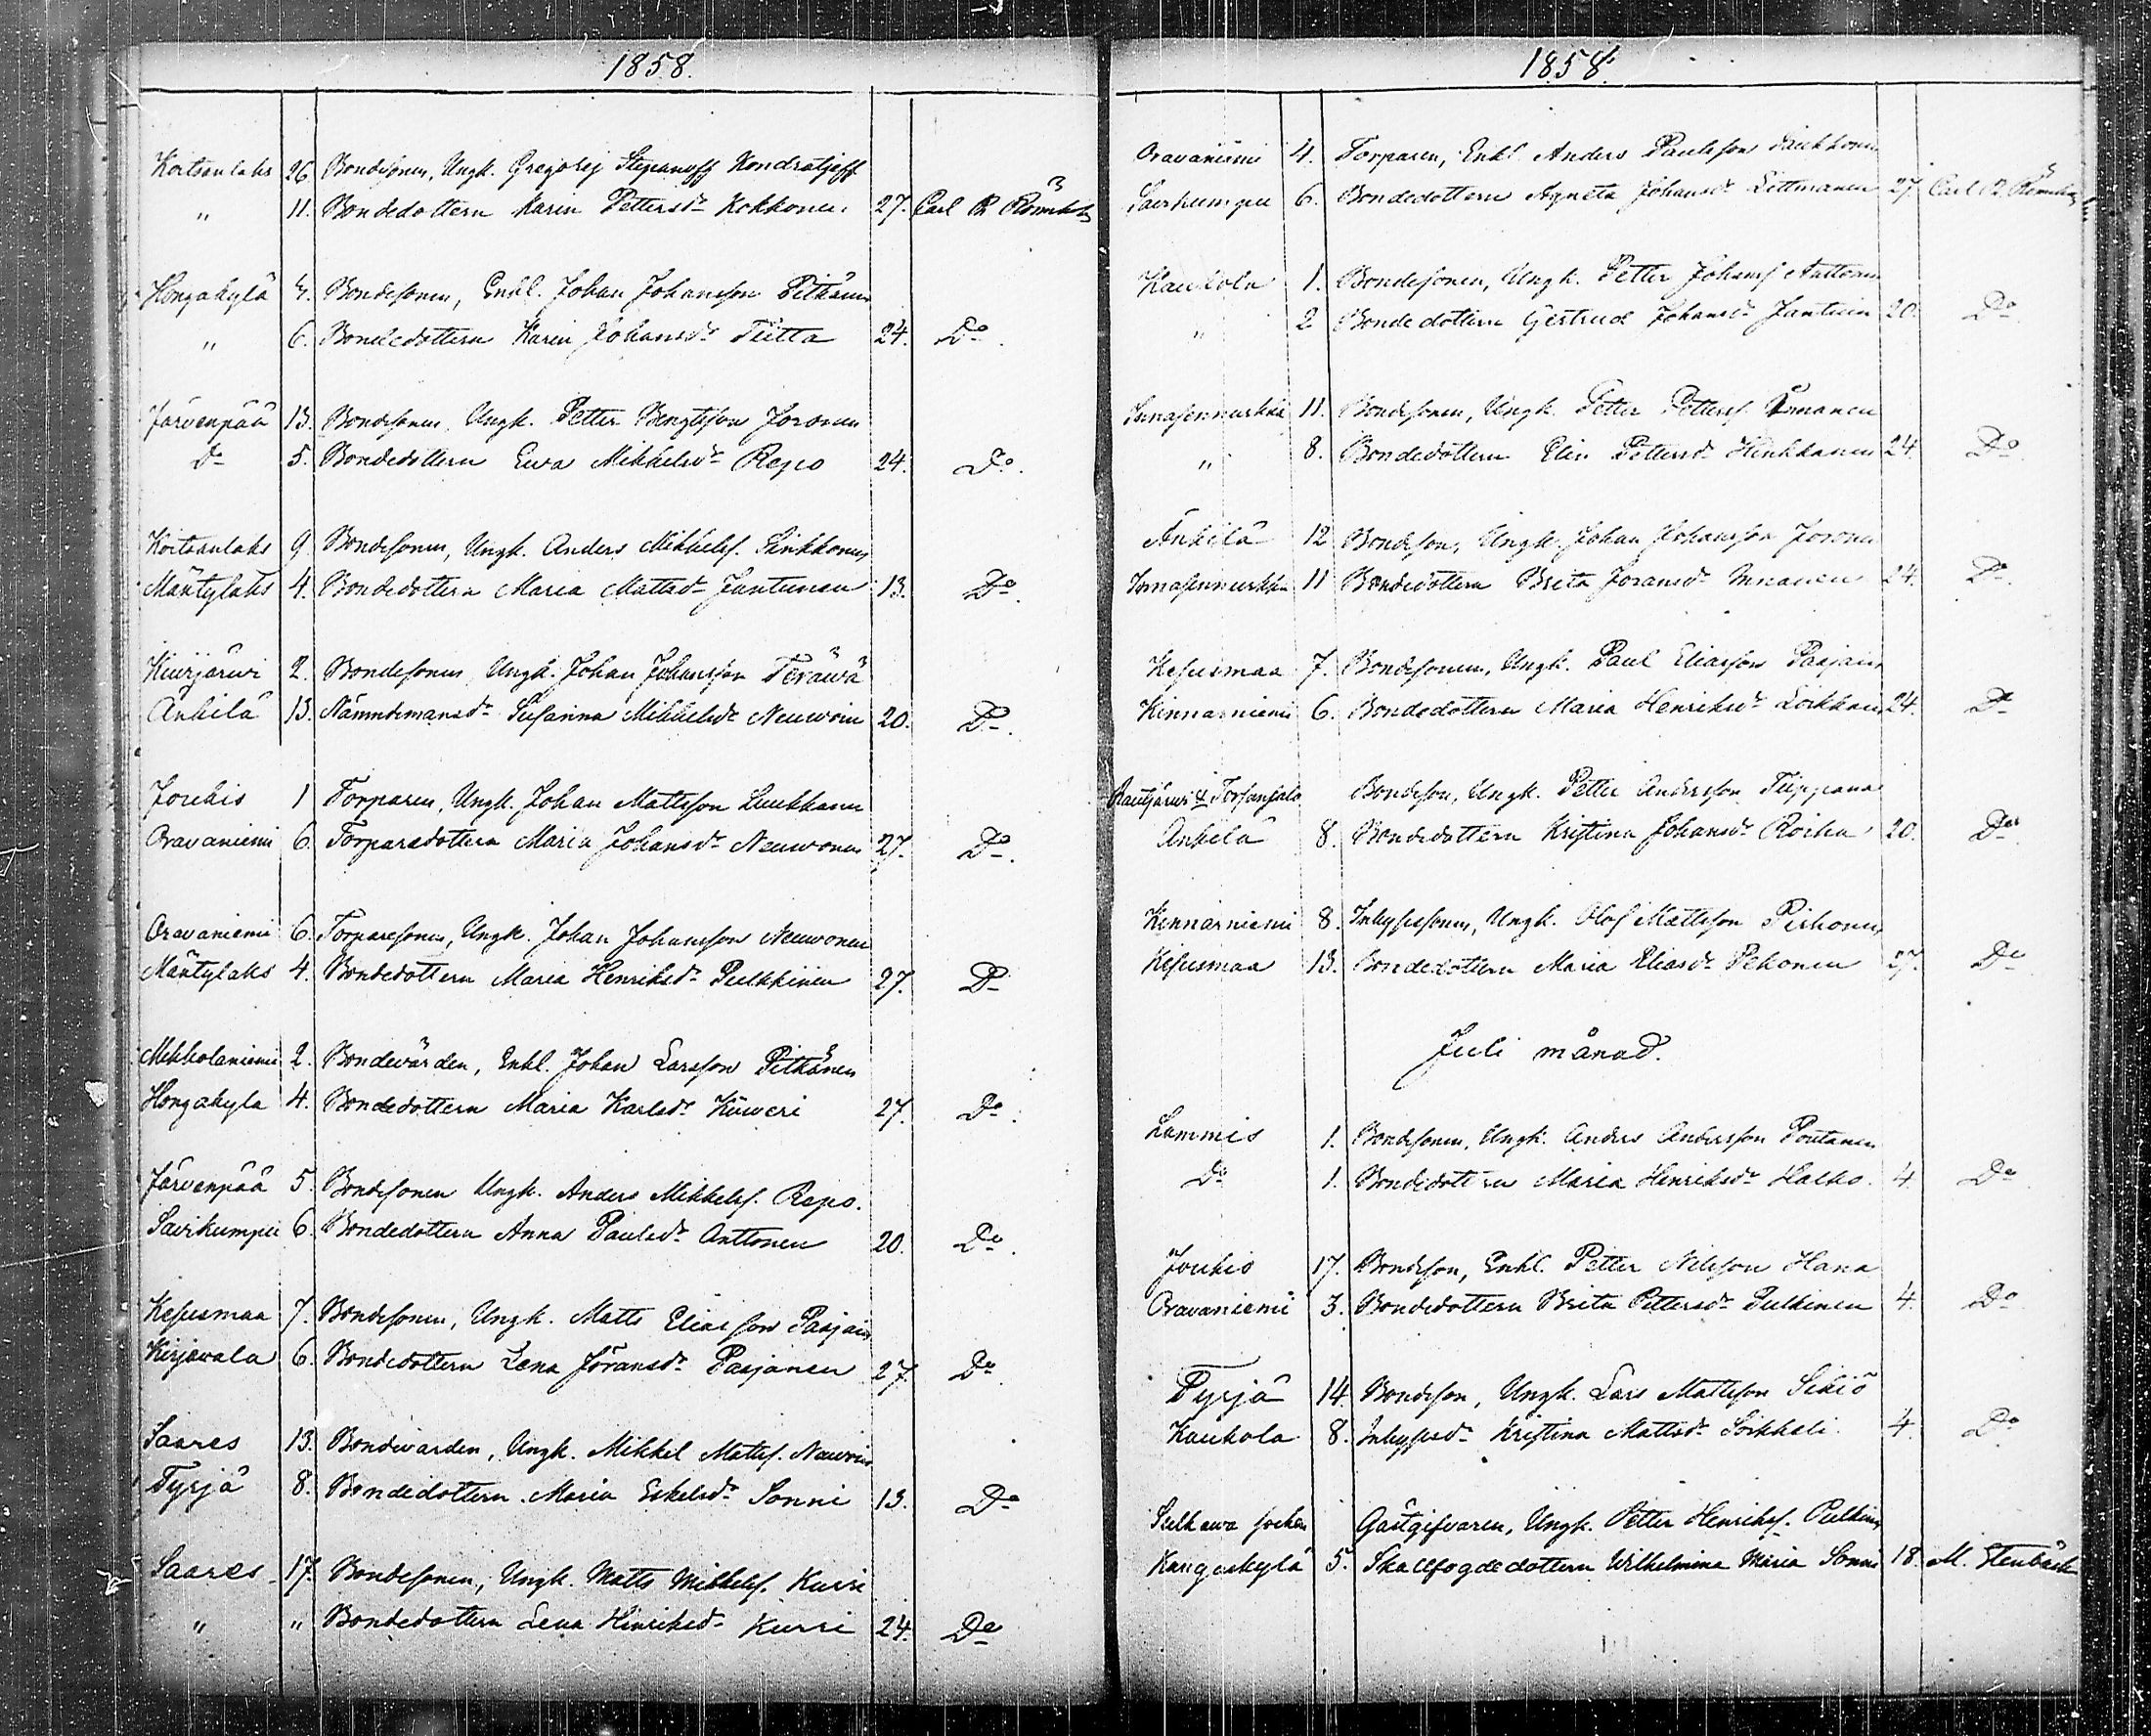 1858.
Koitsanlaks 26 Bondesonen, Ungk. Gregorij Stepanoff Kondratjeff
" 11. Bondedottern Karin Pettersdr Kokkonen 27. Carl R
Hongakylä 4. Bondesonen, Enkl. Johan Johansson Pitkänen
" 6. Bondedottern Karin Johansdr Tiitta 24. Do.
Järvenpää 13. Bondesonen, Ungk. Petter Bengtsson Joronen
Do 5. Bondedottern Ewa Mikkelsdr Repo 24. Do.
Koitsanlaks 9 Bondesonen, Ungk. Anders Mikkelss. Sinkkonen
Mäntylaks 4. Bondedottern Maria Mattsdr Jantunen 13. Do.
Kiurjärwi 2. Bondesonen, Ungk. Johan Johansson Teräwä
Änkilä 13. Nämndemansdr Susanna Mikkelsdr Neuwoin 20. Do.
Joukio 1 Torparen, Ungk. Johan Mattsson Luukkanen
Oravaniemi 6. Torparedottern Maria Johansdr Neuwonen 27. Do.
Oravaniemi 6. Torparesonen, Ungk. Johan Johansson Neuwonen
Mäntylaks 4. Bondedottern Maria Henriksdr Pulkkinen 27. Do
Mikkolaniemi 2. Bondevärden, Enkl. Johan Larsson Pitkänen
Hongakylä 4. Bondedottern Maria Karlsdr Kiiweri 27. Do.
Järvenpää 5. Bondesonen Ungk. Anders Mikkelss. Repo.
Savikumpu 6. Bondedottern Anna Paulsdr Anttonen 20. Do.
Kesusmaa 7. Bondesonen, Ungk. Matts Eliasson Pasjain
Kirjavala 6. Bondedottern Lena Jöransdr Pasjanen 27. Do
Saares 13. Bondevärden, Ungk. Mikkel Matss. Neuvoin
Tyrjä 8. Bondedottern Maria Eskelsdr Sonni 13. Do
Saares 17. Bondesonen, Ungk. Matts Mikkelss. Kurri
" " Bondedottern Lena Hinriksdr Kurri 24. Do
1858.
Oravaniemi 4. Torparen, Enkl. Anders Paulsson
Savikumpu 6. Bondedottern Agneta Johansdr Littmanen 27. Carl R
Kaukola 1. Bondesonen, Ungk. Petter Johanss. Anttonen
" 2 Bondedottern Gertrud Johansdr Jantuin 20. Do
11. Bondesonen, Ungk. Petter Petterss. Immanen
" 8. Bondedottern Elin Pettersdr Hinkkanen 24. Do
Änkilä 12 Bondeson, Ungk. Johan Johansson Joronen
11 Bondedottern Brita Joransdr Innanen 24. Do
Kesusmaa 7. Bondesonen, Ungk. Paul Eliasson Pasjain
Kinnarniemi 6. Bondedottern Maria Henriksdr Loikkain 24. Do
Rautjärwi & Torsansalo Bondeson, Ungk. Petter Andersson Tiippana
Änkilä 8. Bondedottern Kristina Johansdr Roiha 20. Do
Kinnarniemi 8. Inhysessonen, Ungk. Olof Mattsson Pirhonen
Kesusmaa 13. Bondedottern Maria Eliasdr Pekonen 27. Do
Juli månad.
Lammis 1. Bondesonen, Ungk. Anders Andersson Poutanen
Do 1. Bondedottern Maria Henriksdr Halko. 4. Do
Joukio 17. Bondeson, Enkl. Petter Nilsson Hana
Oravaniemi 3. Bondedottern Brita Pettersdr Pulkinen 4. Do
Tyrjä 14. Bondeson, Ungk. Lars Mattsson Sikiö
Kaukola 8. Inhysesdr Kristina Mattsdr Soikkeli. 4. Do
Sulkava socken Gästgifvaren, Ungk. Petter Henrikss. Pulkin
Kangaskylä 5. Skallfogdedottern Wilhelmina Maria Sonni 18. M. Stenbäck